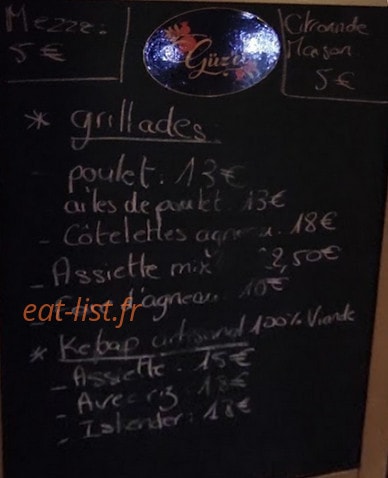 Mezze:
5 €
Güze
Citronade
Maison
5 €
* grillades
- poulet. 13€
ailes de poulet. 13€
- Côtelettes agneau. 18€
- Assiette mix 2,50€
- d'agneau.
eat-list.fr
* Kebap artisanal 100% Viande
- Assiette. 15€
- Avec riz. 18€
- Iskender. 18€